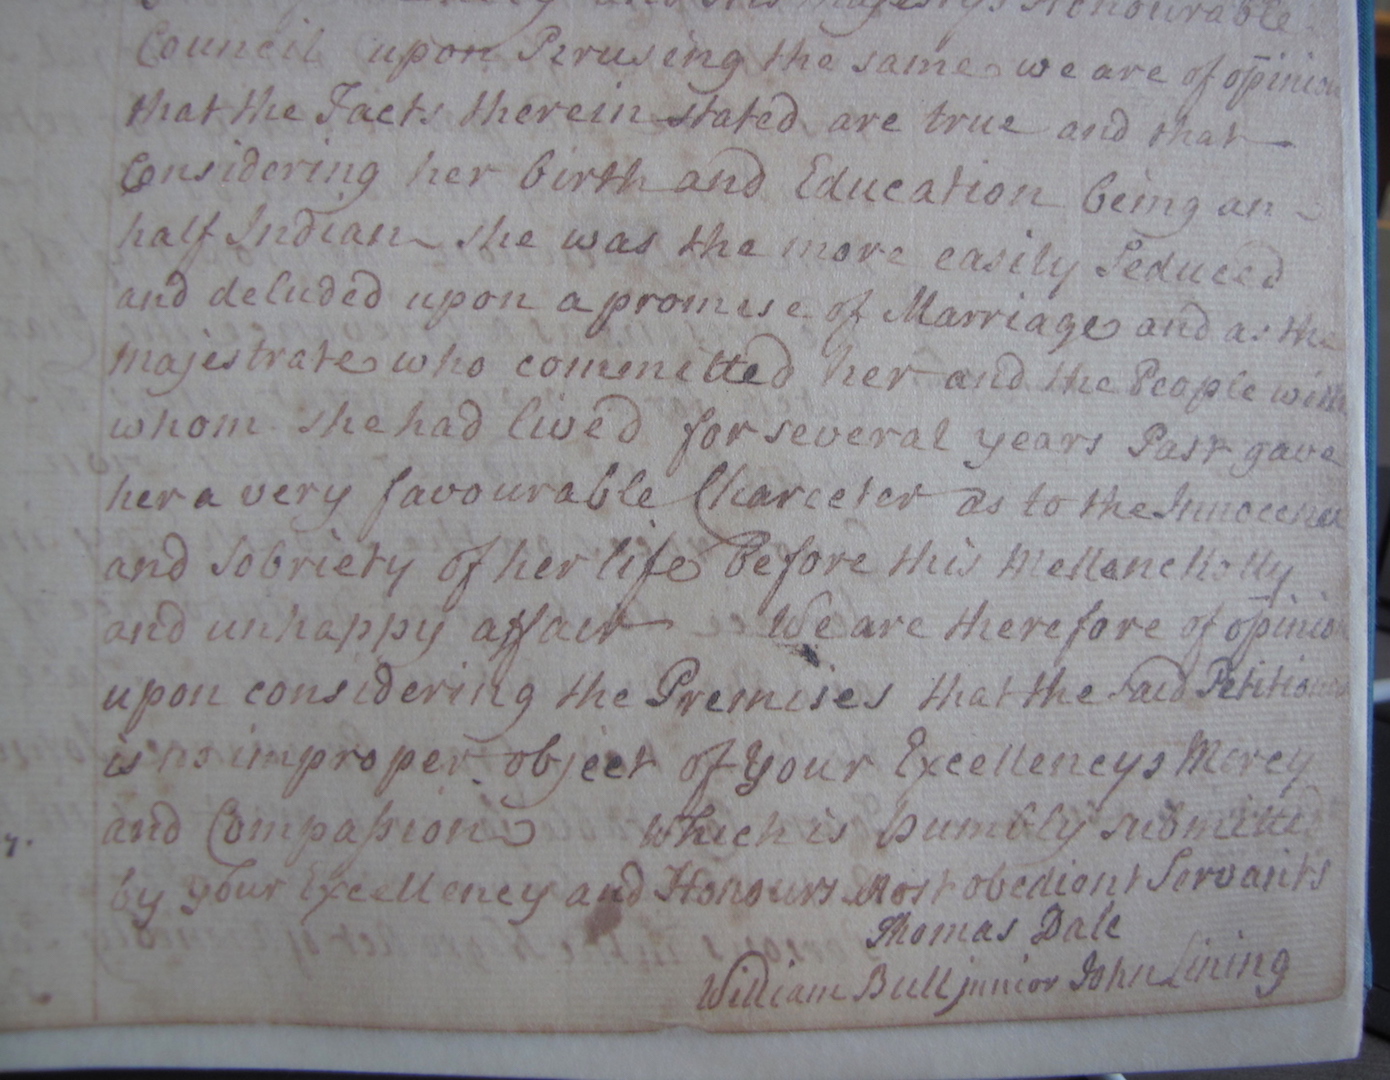 and his Majestys Honourable
Council upon Peruseing the same we are of opinion
that the Facts therein stated are true and that
Considering her birth and Education being an
half Indian she was the more easily Seduced
and deluded upon a promise of Marriage and as the
Majestrate who committed her and the People with
whom she had lived for several years Past gave
her a very favourable Charecter as to the Innocence
and Sobriety of her life Before this Mellancholly
and unhappy affair We are therefore of opinio
upon considering the Premises that the said Petitioner
is no improper object of Your Excellencys Mercy
and Compassion Which is humbly submitted
by your Excellency and Honours Most obedient Servants
Thomas Dale
William Bull junior John Lining